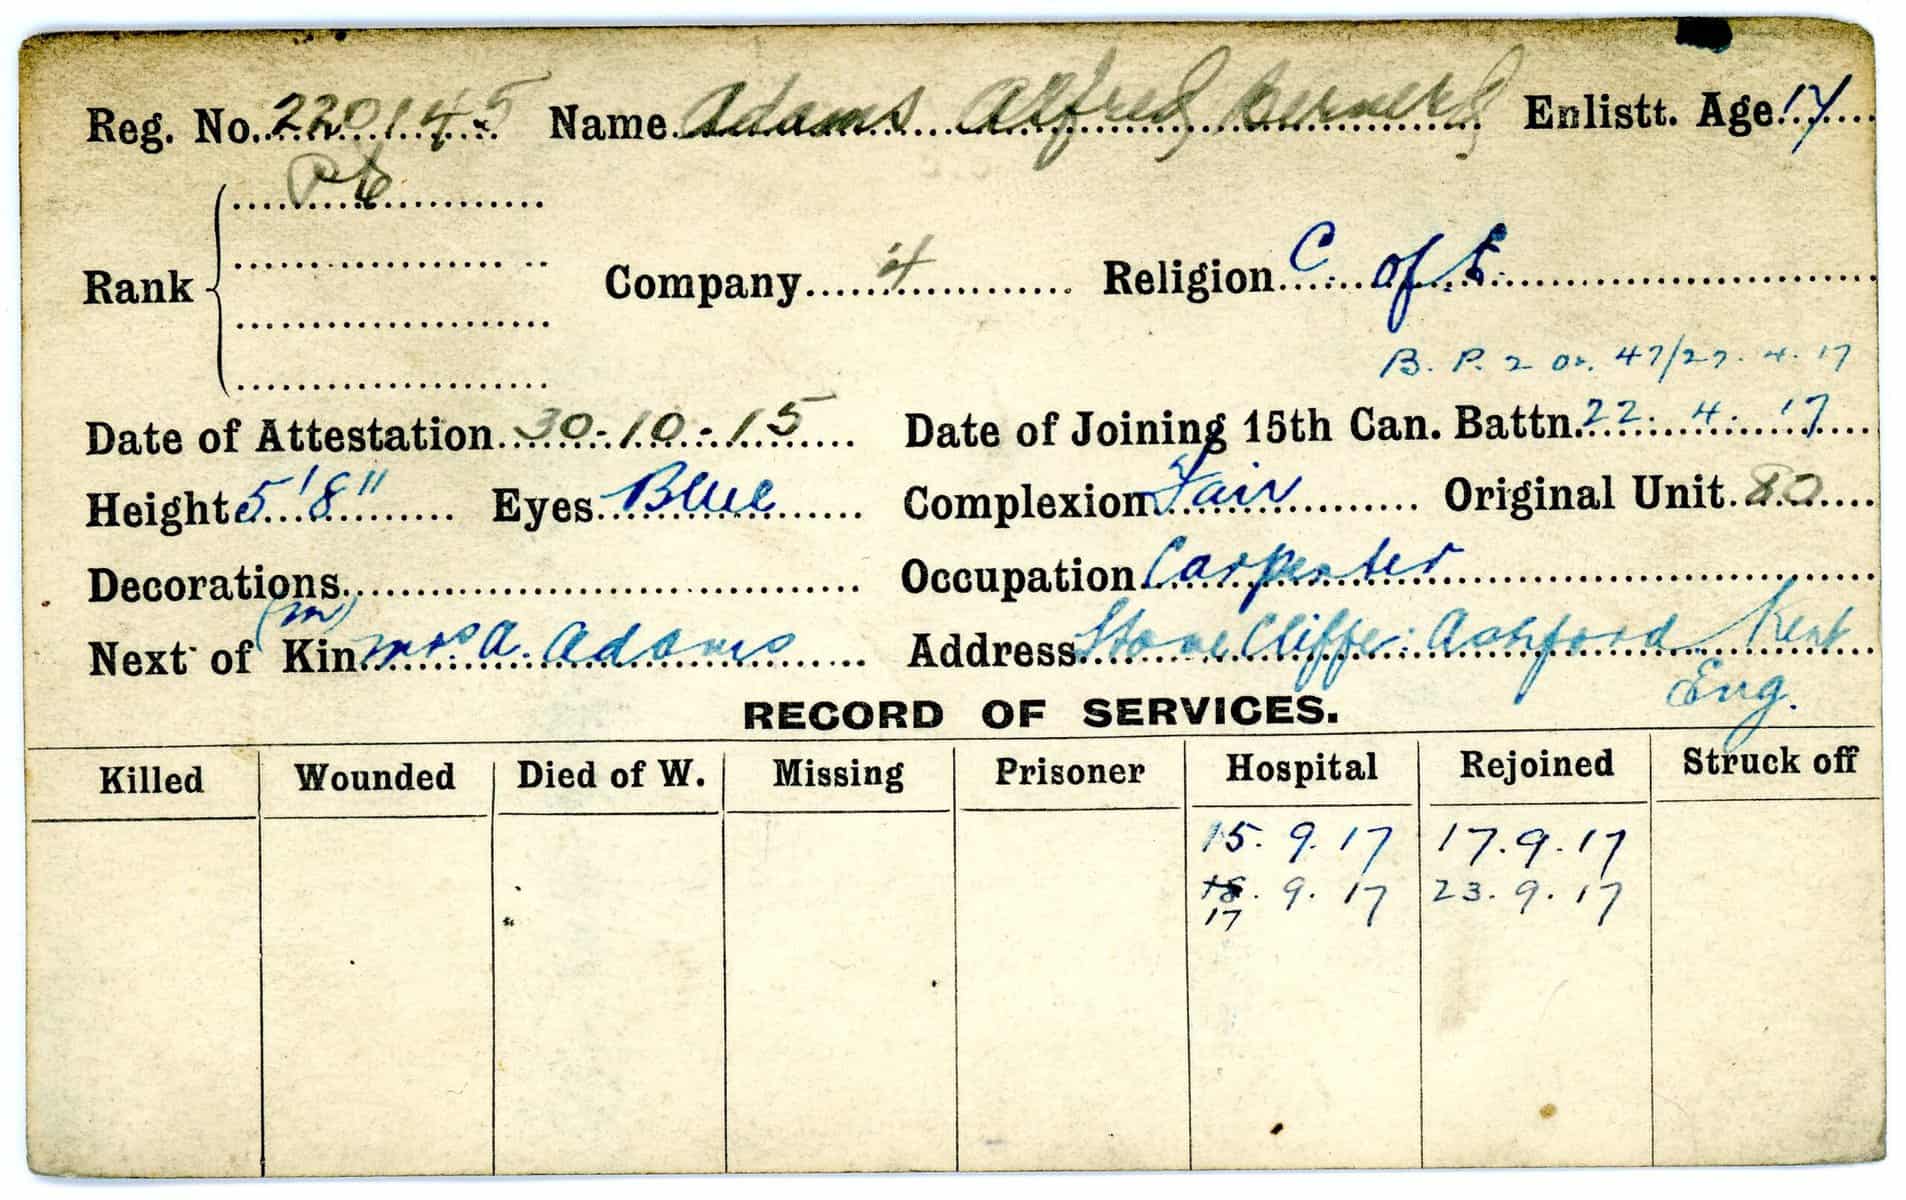 Reg. No. 220145 Name Adams Alfred Enlistt. Age 17
Pte
Rank Company 4 Religion C of E.
B. P. 2 Or. 47/27. 4. 17
Date of Attestation 30-10-15 Date of Joining 15th Can. Battn. 22. 4. 17
Height 5'8" Eyes Blue Complexion Fair Original Unit 80
Decorations Occupation Carpenter
(m)
Next of Kin Mrs A. Adams Address Stone Cliffe: Ashford Kent
Eng.
RECORD OF SERVICES.
Killed Wounded Died of W. Missing Prisoner Hospital Rejoined Struck off
15. 9. 17 17. 9. 17
18. 9. 17 23. 9. 17
17